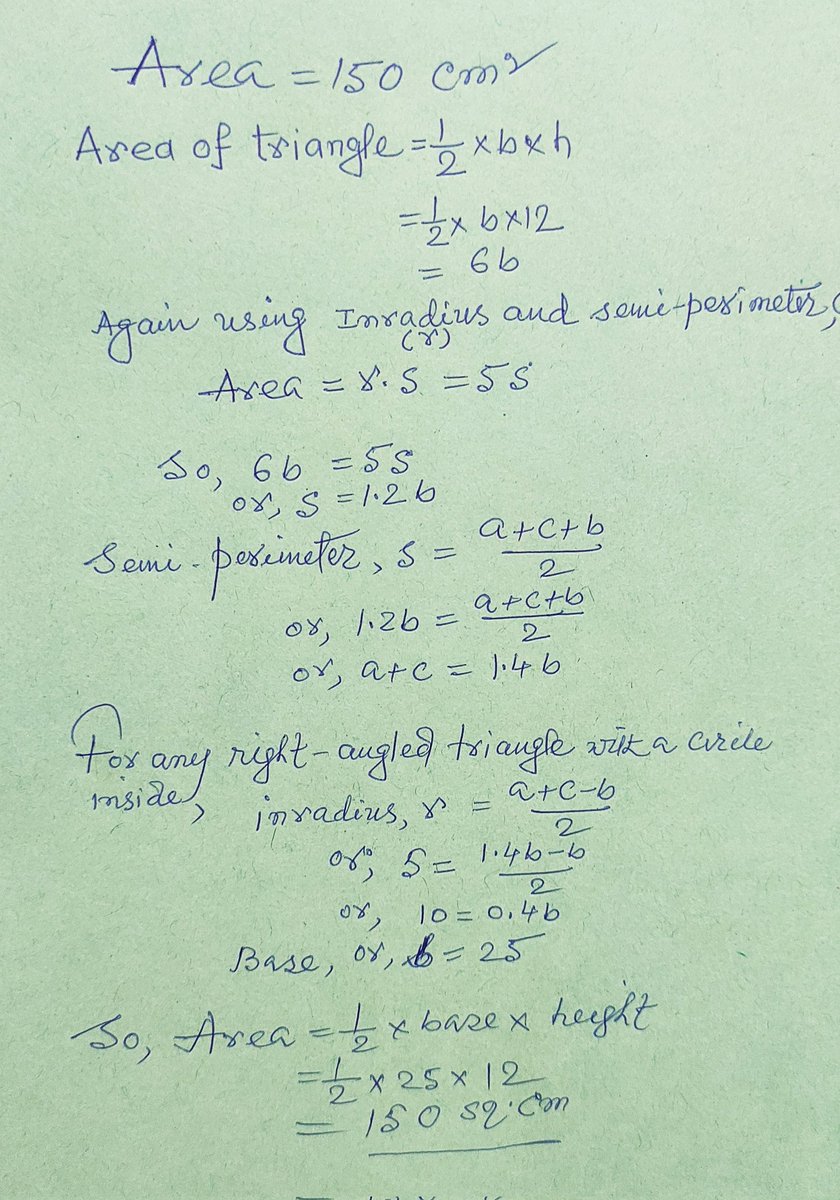 Area = 150 cm²
Area of triangle = 1/2 × b × h
= 1/2 × b × 12
= 6b
Again using Inradius and semi-perimeter,
(r)
Area = r. s = 5s
So, 6b = 5s
or, s = 1.2b
Semi-perimeter, s = (a+c+b)/2
or, 1.2b = (a+c+b)/2
or, a+c = 1.4b
For any right-angled triangle with a circle
inside, inradius, r = (a+c-b)/2
or, 5 = (1.4b-b)/2
or, 10 = 0.4b
Base, or, b = 25
So, Area = 1/2 × base × height
= 1/2 × 25 × 12
= 150 sq.cm